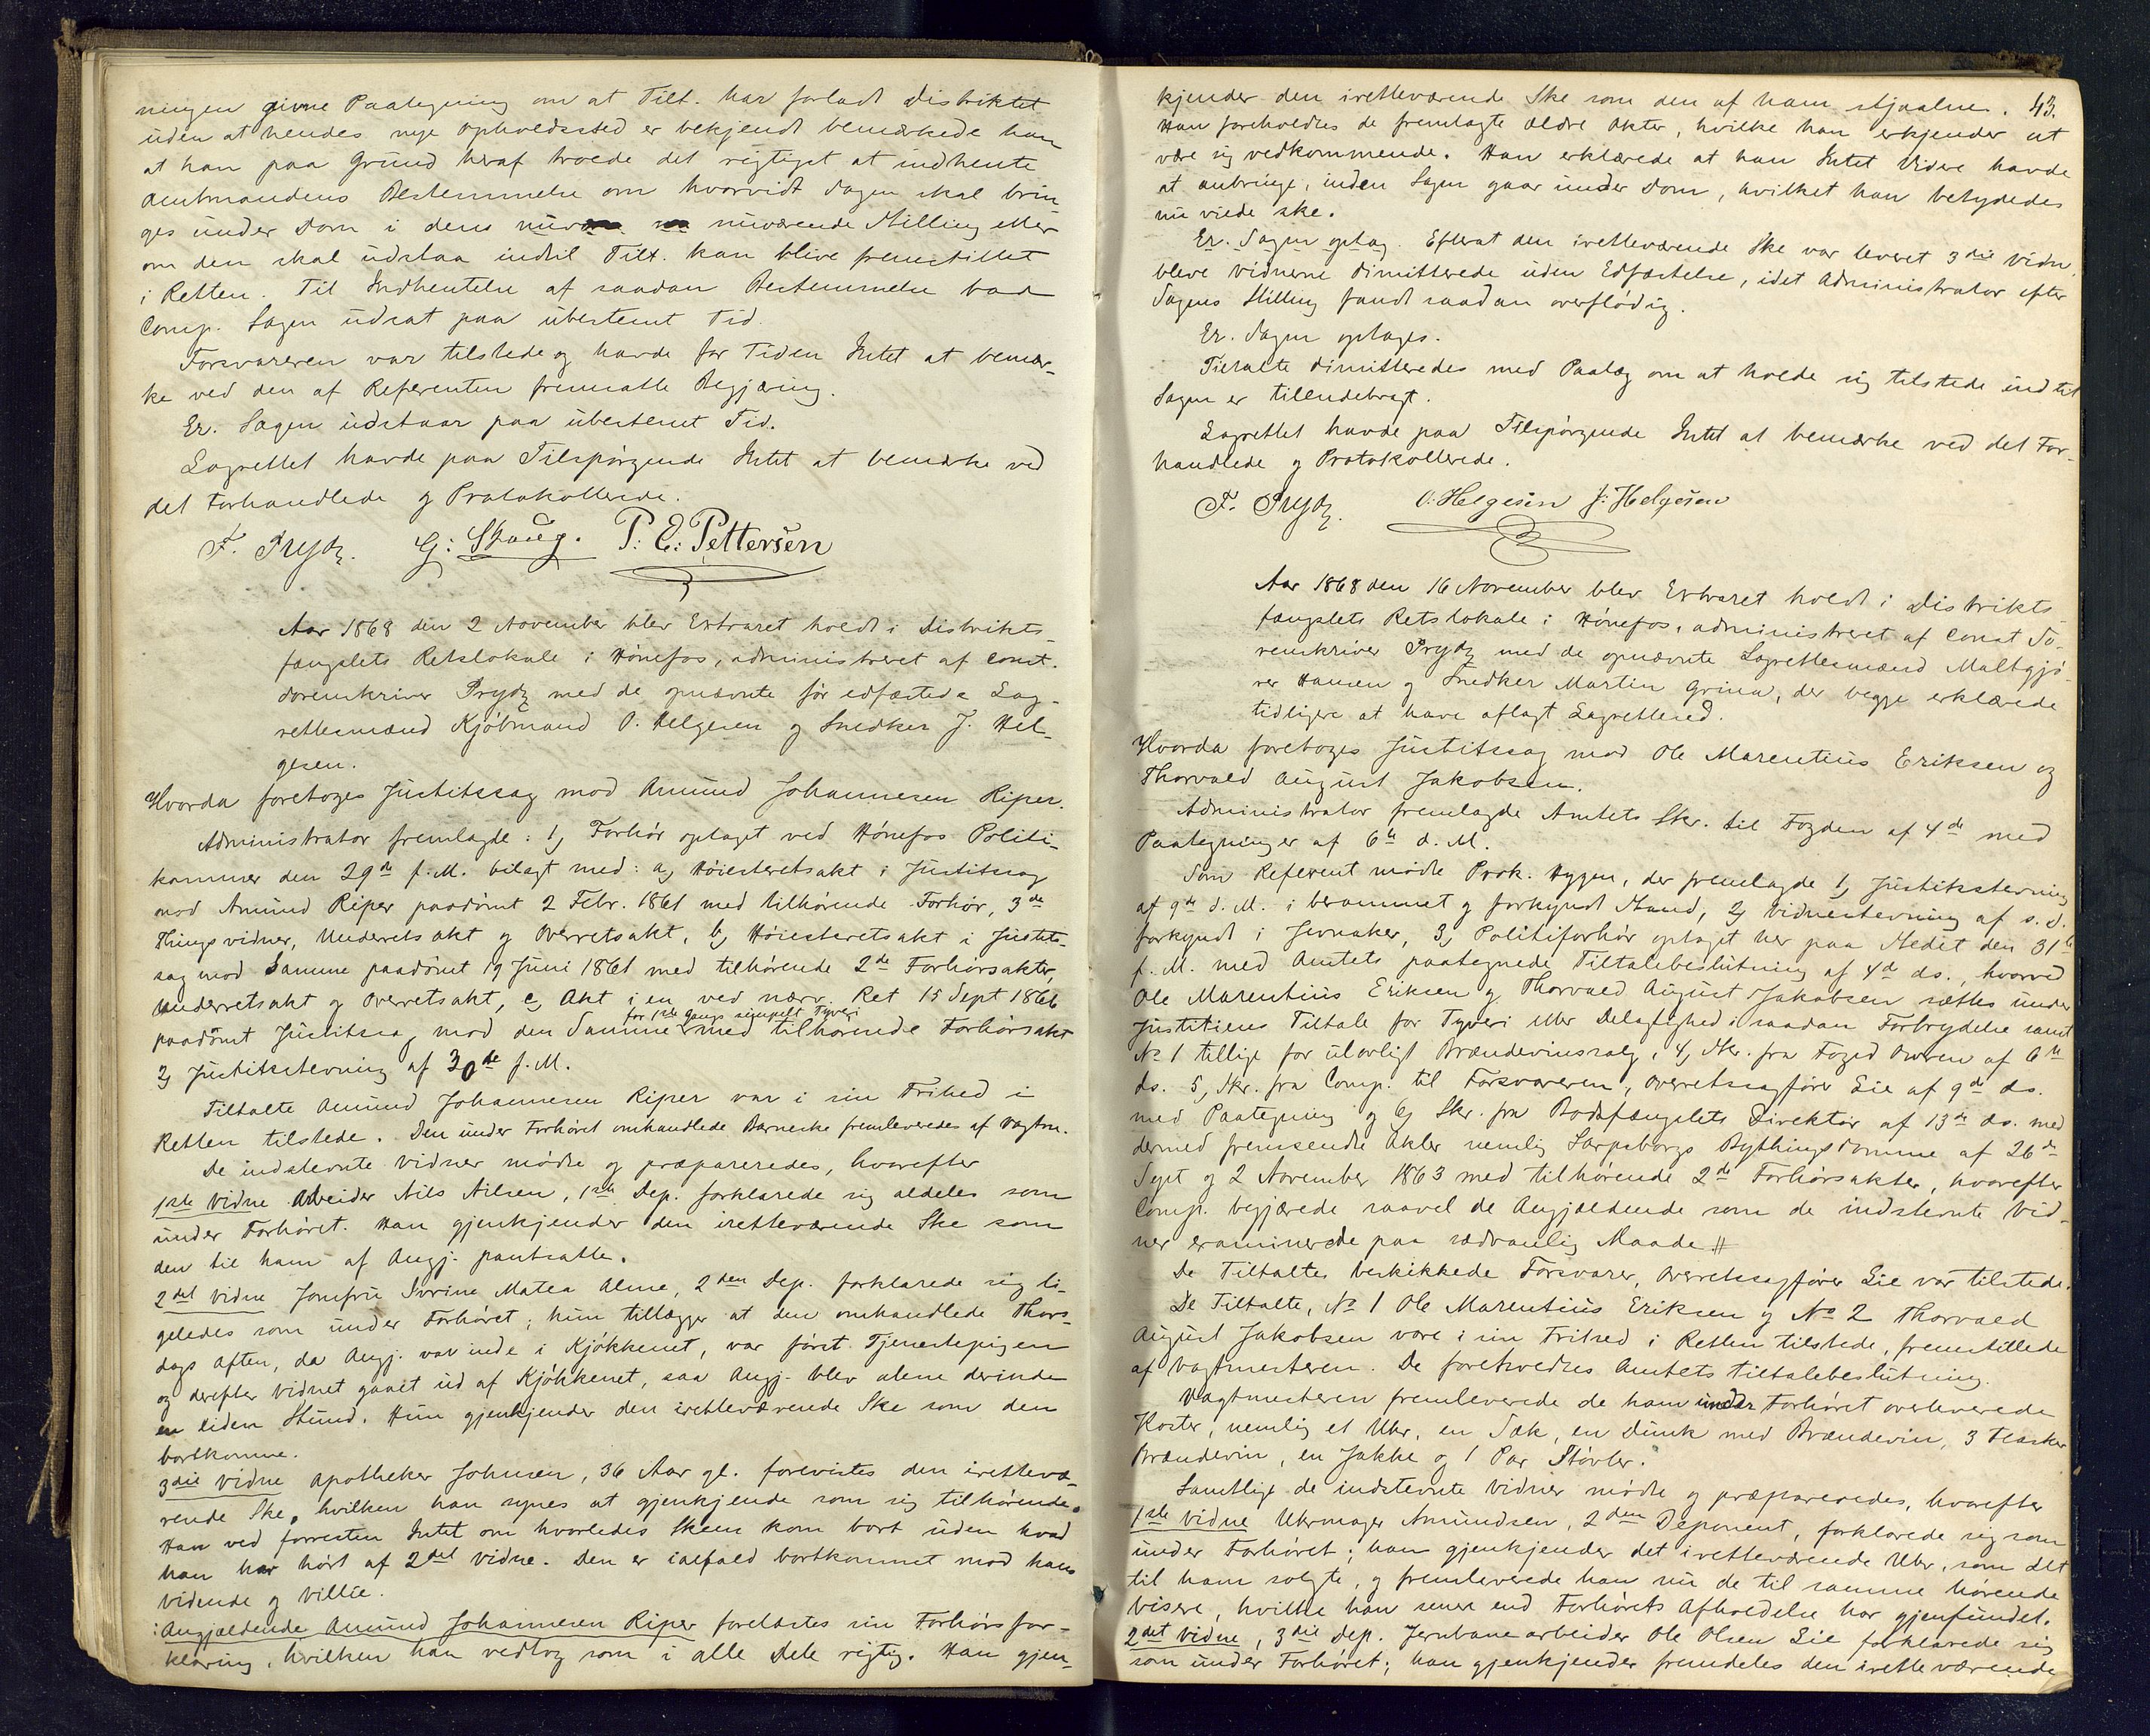 ningen givne Paategning om at Tilt. har forladt Distriktet
uden at hendes nye Opholdssted er bekjendt bemærkede han
at han paa Grund heraf troede det rigtigst at indhente
Amtmandens Bestemmelse om hvorvidt Sagen skal brin
ges under Dom i dens nuværende Stilling eller
om den skal udstaa indtil Tilt. kan blive fremstillet
i Retten. Til Indhentelse af saadan Bestemmelse bad
Comp. Sagen udsat paa ubestemt Tid.
Forsvareren var tilstede og havde for Tiden Intet at bemær-
ke ved den af Referenten fremsatte Begjæring.
Er. Sagen udstaar paa ubestemt Tid.
Lagrettet havde paa Tilspørgende Intet at bemærke ved
det Forhandlede og Protokollerede.
F. Prydz. G: Skoug. P: E: Pettersen
Aar 1868 den 2 November blev Extraret holdt i Distrikts-
fængslets Retslokale i Hönefos, administreret af const.
Sorenskriver Prydz med de opnævnte før edfæstede Lag-
rettesmænd Kjöbmand O. Helgesen og Snedker J. Hel-
gesen.
Hvorda foretoges Justitssag mod Amund Johannesen Riper.
Administrator fremlagde: 1, Forhör optaget ved Hönefos Politi-
kammer den 29de f. M. bilagt med: a, Höiesteretsakt i Justitssag
mod Amund Riper paadömt 2 Febr. 1861 med tilhörende Forhör, 3de
Thingsvidner, Underretsakt og Overretsakt, b, Höiesteretsakt i Justits-
sag mod Samme paadömt 19 Juni 1861 med tilhörende 2de Forhörsakter
Underretsakt og Overretsakt, c, Akt i en ved nærv. Ret 15 Sept 1866
for 1ste Gangs simpelt Tyveri
paadömt Justitssag mod den Samme med tilhörende Forhörsakt
2, Justitsstevning af 30te f. M.
Tiltalte Amund Johannesen Riper var i sin Frihed i
Retten tilstede. Den under Forhöret omhandlede Barneske fremleveredes af Vagtm.
De indstevnte Vidner mödte og præpareredes, hvorefter
1ste Vidne Arbeider Nils Nilsen, 1ste Dep. forklarede sig aldeles som
under Forhöret. Han gjenkjender den iretteværende Ske som
den til ham af Angj. pantsatte.
2det Vidne Jomfru Matea Alme, 2den Dep. forklarede sig li-
geledes som under Forhöret; hun tillægger at den omhandlede Thors-
dags Aften, da Angj. var inde i Kjökkenet, var först Tjenestepigen
og derefter Vidnet gaaet ud af Kjökkenet, saa Angj. blev alene derinde
en liden Stund. Hun gjenkjender den iretteværende Ske som den
bortkomne.
3die Vidne Apotheker Johnsen, 36 Aar gl. forevistes den irettevæ-
rende Ske, hvilken han synes at gjenkjende som sig tilhörende.
Han ved forresten Intet om hvorledes Skeen kom bort uden hvad
han har hört af 2det Vidne. Den er ialfald bortkommet mod hans
Vidende og Villie.
Angjældende Amund Johannesen Riper forelæstes sin Forhörsfor-
klaring, hvilken han vedtog som i alle Dele rigtig. Han gjen-
43.
kjender den iretteværende Ske som den af ham stjaalne.
Han foreholdtes de fremlagte ældre Akter, hvilke han erkjender at
være sig vedkommende. Han erklærede at han Intet Videre havde
at anbringe, inden Sagen gaar under Dom, hvilket han betydedes
nu vilde ske.
Er. Sagen optag. Efterat den iretteværende Ske var leveret 3die Vidn.
bleve Vidnerne dimitterede uden Edfæstelse, idet Administrator efter
Sagens Stilling fandt saadan overflödig.
Er. Sagen optages.
Tiltalte dimitteredes med Paalæg om at holde sig tilstede indtil
Sagen er tilendebragt.
Lagrettet havde paa Tilspörgende Intet at bemærke ved det For-
handlede og Protokollerede.
F. Prydz. O: Helgesen J: Helgesen
Aar 1868 den 16 November blev Extraret holdt i Distrikts
fængslets Retslokale i Hönefos, administreret af const So-
renskriver Prydz med de opnævnte Lagrettesmænd Maltgjö-
rer Hansen og Snedker Martin Grina, der begge erklærede
tidligere at have aflagt Lagrettesed.
Hvorda foretoges Justitssag mod Ole Marentius Eriksen og
Thorvald August Jakobsen.
Administrator fremlagde Amtets Skr. til Fogden af 4de med
Paategninger af 6te d. M.
Som Referent mödte Prok. Hygen, der fremlagde 1, Justitsstevning
af 9de d. M. i berammet og forkyndt Stand, 2, Vidnestevning af s. d.
forkyndt i Jevnaker, 3, Politiforhör optaget her paa Stedet den 31te
f. M. med Amtets paategnede Tiltalebeslutning af 4de ds., hvorved
Ole Marentius Eriksen og Thorvald August Jakobsen sættes under
Justitiens Tiltale for Tyveri eller Delagtighed i saadan Forbrydelse samt
No 1 tillige for ulovligt Brændevinssalg, 4, Skr. fra Foged Owren af 6te
ds. 5, Skr. fra Comp. til Forsvareren, Overretssagförer Lie af 9de ds.
med Paategning og 6, Skr. fra Bodsfængslets Direktör af 13de ds. med
dermed fremsendte Akter nemlig Sarpsborgs Bythingsdomme af 26de
Sept og 2 November 1863 med tilhörende 2de Forhörsakter, hvorefter
Comp. begjærede saavel de Angjældende som de indstevnte Vid-
ner examinerede paa sædvanlig Maade.
De Tiltaltes beskikkede Forsvarer, Overretssagförer Lie var tilstede.
De Tiltalte, No 1 Ole Marentius Eriksen og No 2 Thorvald
August Jakobsen vare i sin Frihed i Retten tilstede, fremstillede
af Vagtmesteren. De foreholdtes Amtets Tiltalebeslutning.
Vagtmesteren fremleverede de ham under Forhöret overleverede
Koster, nemlig et Uhr, en Sæk, en Dunk med Brændevin, 3 Flasker
Brændevin, en Jakke og 1 Par Stövler.
Samtlige de indstevnte Vidner mödte og præpareredes, hvorefter
1ste Vidne Uhrmager Amundsen, 2den Deponent, forklarede sig som
under Forhöret; han gjenkjender det iretteværende Uhr, som det
til ham solgte, og fremleverede han nu de til samme hörende
Visere, hvilke han senere end Forhörets Afholdelse har gjenfundet.
2det Vidne, 3die Dep. Jernbanearbeider Ole Olsen Lie forklarede sig
som under Forhöret; han gjenkjender fremdeles den iretteværende